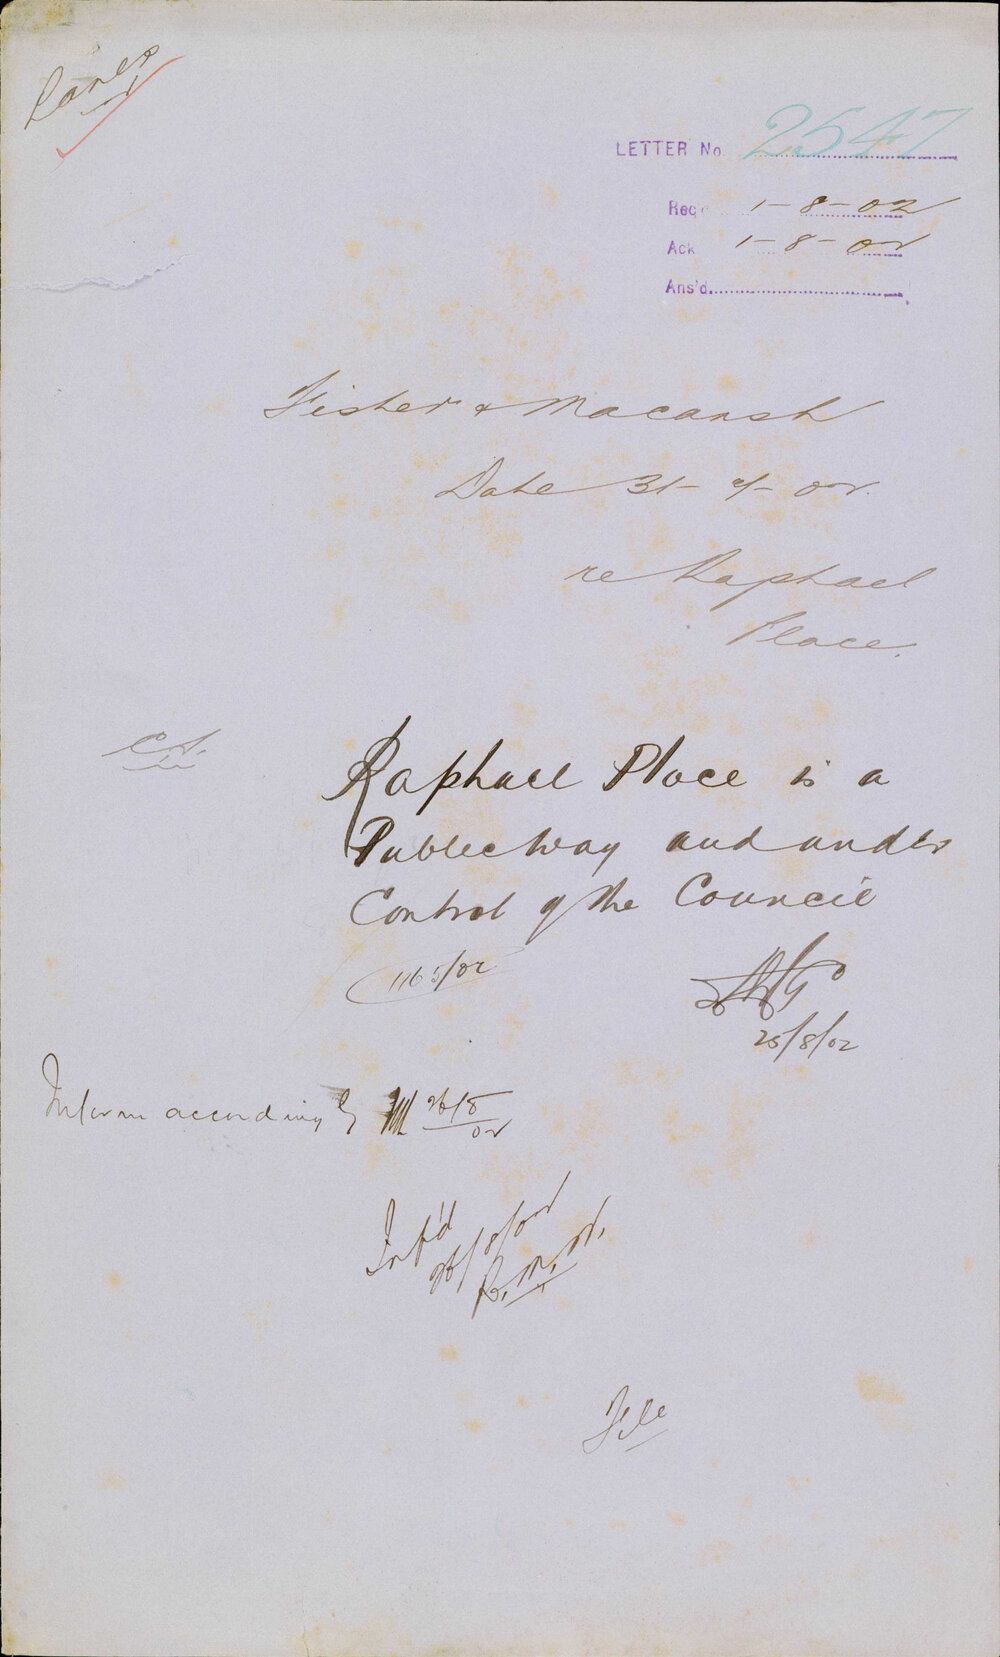 Lanes
LETTER No. 2547
Rec 1-8-02
Ack 1-8-02
Ans'd
Fisher & Macansh
Date 31-7-02.
re Raphael
Place.
C.S.
Raphael Place is a
Public way and under
Control of the Council
1165/02
25/8/02
Inform accordingly 26/8/02
Inf'd
26/8/02
File